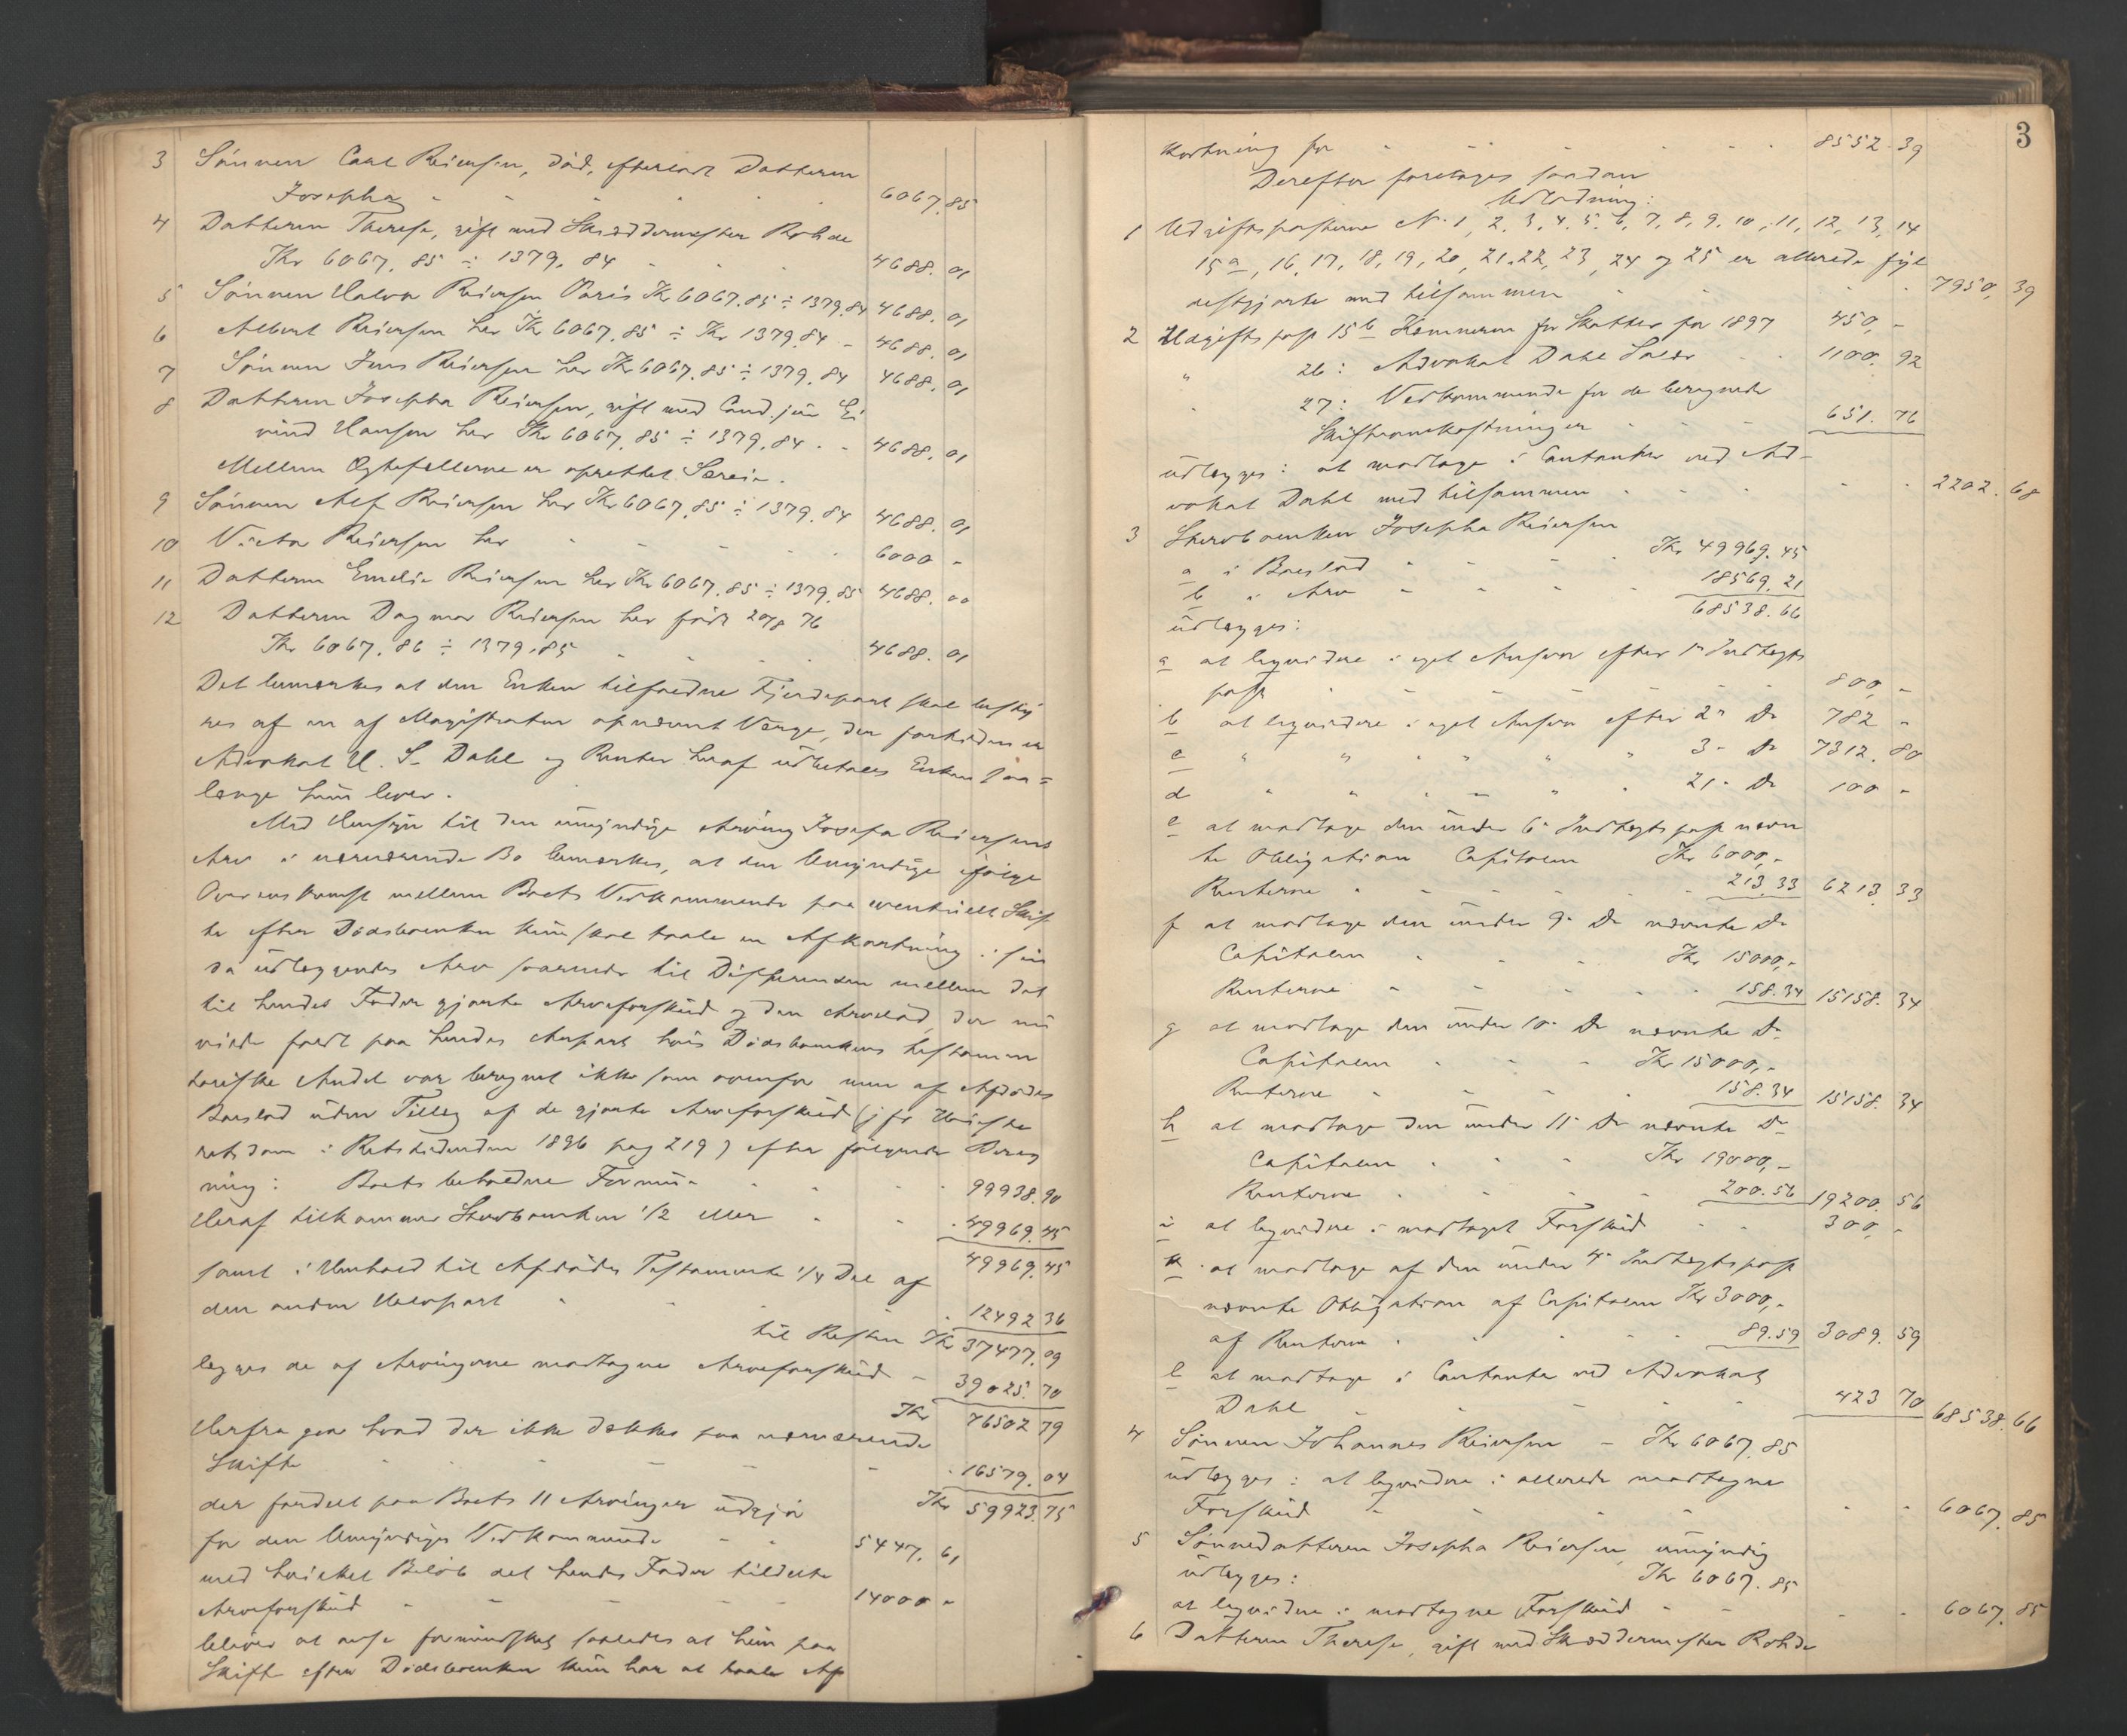 3 Sönnen Carl Reiersen, död, efterladt Datteren
Josepha - - - - 6067. 85
4 Datteren Therese, gift med Skræddermester Rohde
Kr 6067. 85 ÷ 1379. 84 - - - 4688. 01
5 Sönnen Halvor Reiersen Paris Kr 6067. 85 ÷ 1379. 84 4688. 01
6 Albert Reiersen her Kr 6067. 85 ÷ Kr 1379. 84 - 4688. 01
7 Sönnen Jens Reiersen her Kr 6067. 85 ÷ 1379. 84 4688. 01
8 Datteren Josepha Reiersen, gift med Cand. jur Ei
vind Hansen her Kr 6067. 85 ÷ 1379. 84 - - 4688. 01
Mellem Ægtefællerne er oprettet Særeie.
9 Sönnen Alf Reiersen her Kr 6067. 85 ÷ 1379. 84 4688. 01
10 Victor Reiersen her - - - - 6000 -
11 Datteren Emilie Reiersen her Kr 6067. 85 ÷ 1379. 85 4688. 00
12 Datteren Dagmar Reiersen her født 20/8 76
Kr 6067. 86 ÷ 1379. 85 - - - - 4688. 01
Det bemærkes at den Enken tilfaldne Fjerdepart skal besty
res af en af Magistraten opnævnt Værge, der fortiden er
Advokat H. S. Dahl og Renter heraf udbetales Enken saa=
længe hun lever.
Med Hensyn til den umyndige Arving Josefa Reiersens
Arv i nærværende Bo bemærkes, at den Umyndige ifölge
Overenskomst mellem Boets Vedkommende paa eventuelt Skif
te efter Dödsboenken kun skal taale en Afkortning i sin
da udlæggendes Arv svarende til Differensen mellem det
til hendes Fader gjorte Arveforskud og den Arvelod, der nu
vilde faldt paa hendes Anpart hvis Dödsboenkens testamen
tariske Andel var beregnet ikke som ovenfor men af Afdödes
Boeslod uden Tillæg af de gjorte Arveforskud (jfr Höieste
retsdom i Retstidenden 1896 pag 219) efter fölgende Bereg
ning: Boets beholdne Formue - - - 99938. 90
Heraf tilkommer Stervboenken 1/2 eller - - 49969. 45
49969. 45
samt i Henhold til Afdödes Testamente 1/4 Del af
den anden Halvpart - - - 12492 36
til Resten Kr 37477. 09
lægges de af Arvingerne modtagne Arveforskud - 39025. 70
Kr 76502 79
Herfra gaar hvad der ikke dækkes paa nærværende
Skifte - - - - - 16579. 04
Kr 59923. 75
der fordelt paa Boets 11 Arvinger udgjör
for den Umyndiges Vedkommende - - 5447. 61
med hvilket Belöb det hendes Fader tildelte
Arveforskud - - - - 14000 -
bliver at formindske saaledes at hun paa
Skifte efter Dödsboenken kun har at taale Af
3
kortning for - - - - - 8552. 39
Derefter foretages saadan
Udlodning:
1 Udgiftsposterne N. 1, 2, 3, 4, 5, 6, 7, 8, 9, 10, 11, 12, 13, 14
15a, 16, 17, 18, 19, 20, 21, 22, 23, 24 og 25 er allerede fyl
destgjorte med tilsammen - - - 7950. 39
2 Udgiftspost 15b Kæmneren for Skatter for 1897 450. -
" 26: Advokat Dahl Salær - - 1100. 92
" 27: Vedkommende for de beregnede
Skifteomkostninger - - - 651. 76
udlægges: at modtage i Contanter ved Ad-
vokat Dahl med tilsammen - - - - 2202. 68
3 Stervboenken Josepha Reiersen
a i Boeslod - - - - Kr 49969. 45
b i Arv - - - - - 18569. 21
68538. 66
udlægges:
a at liqvidere i eget Ansvar efter 1 Indtægts
post - - - - - - 800. -
b at liqvidere i eget Ansvar efter 2 Do 782 -
c " " " " " " 3 - Do 7312. 80
d " " " " " " 21 - Do 100 -
e at modtage den under 6 Indtægtspost nævn
te Obligation Capitalen Kr 6000. -
Renterne - - - - 213. 33 6213. 33
f at modtage den under 9 Do nævnte Do
Capitalen - - - Kr 15000. -
Renterne - - - - 158. 34 15158. 34
g at modtage den under 10 Do nævnte Do
Capitalen - - - Kr 15000. -
Renterne - - - - 158. 34 15158. 34
h at modtage den under 11 Do nævnte Do
Capitalen - - - Kr 19000. -
Renterne - - - - 200. 56 19200. 56
i at liqvidere i modtaget Forskud - - 300. -
k at modtage af den under 4 Indtægtspost
nævnte Obligation af Capitalen Kr 3000. -
af Renterne - - - - 89. 59 3089. 59
l at modtage i Contanter ved Advokat
Dahl - - - - - 423 70 68538. 66
4 Sönnen Johannes Reiersen - Kr 6067. 85
udlægges: at liqvidere i allerede modtagne
Forskud - - - - - - 6067. 85
5 Sönnedatteren Josepha Reiersen, umyndig
Kr 6067. 85
udlægges:
at liqvidere i modtagne Forskud - - - - 6067. 85
6 Datteren Therese, gift med Skræddermester Rohde